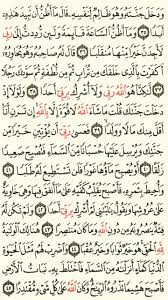 وَدَخَلَ جَنَّتَهُۥ وَهُوَ ظَالِمٌ لِّنَفْسِهِۦ قَالَ مَآ أَظُنُّ أَن تَبِيدَ هَٰذِهِۦٓ
أَبَدًا ٣٥ وَمَآ أَظُنُّ ٱلسَّاعَةَ قَآئِمَةً وَلَئِن رُّدِدتُّ إِلَىٰ رَبِّى
لَأَجِدَنَّ خَيْرًا مِّنْهَا مُنقَلَبًا ٣٦ قَالَ لَهُۥ صَاحِبُهُۥ وَهُوَ يُحَاوِرُهُۥٓ
أَكَفَرْتَ بِٱلَّذِى خَلَقَكَ مِن تُرَابٍ ثُمَّ مِن نُّطْفَةٍ ثُمَّ سَوَّىٰكَ رَجُلًا
٣٧ لَّٰكِنَّا۠ هُوَ ٱللَّهُ رَبِّى وَلَآ أُشْرِكُ بِرَبِّىٓ أَحَدًا ٣٨ وَلَوْلَآ إِذْ دَخَلْتَ
جَنَّتَكَ قُلْتَ مَا شَآءَ ٱللَّهُ لَا قُوَّةَ إِلَّا بِٱللَّهِ إِن تَرَنِ أَنَا۠ أَقَلَّ
مِنكَ مَالًا وَوَلَدًا ٣٩ فَعَسَىٰ رَبِّىٓ أَن يُؤْتِيَنِ خَيْرًا مِّن
جَنَّتِكَ وَيُرْسِلَ عَلَيْهَا حُسْبَانًا مِّنَ ٱلسَّمَآءِ فَتُصْبِحَ صَعِيدًا
زَلَقًا ٤٠ أَوْ يُصْبِحَ مَآؤُهَا غَوْرًا فَلَن تَسْتَطِيعَ لَهُۥ طَلَبًا ٤١
وَأُحِيطَ بِثَمَرِهِۦ فَأَصْبَحَ يُقَلِّبُ كَفَّيْهِ عَلَىٰ مَآ أَنفَقَ فِيهَا وَهِىَ خَاوِيَةٌ
عَلَىٰ عُرُوشِهَا وَيَقُولُ يَٰلَيْتَنِى لَمْ أُشْرِكْ بِرَبِّىٓ أَحَدًا ٤٢ وَلَمْ تَكُن لَّهُۥ
فِئَةٌ يَنصُرُونَهُۥ مِن دُونِ ٱللَّهِ وَمَا كَانَ مُنتَصِرًا ٤٣ هُنَالِكَ ٱلْوَلَٰيَةُ
لِلَّهِ ٱلْحَقِّ هُوَ خَيْرٌ ثَوَابًا وَخَيْرٌ عُقْبًا ٤٤ وَٱضْرِبْ لَهُم مَّثَلَ ٱلْحَيَوٰةِ
ٱلدُّنْيَا كَمَآءٍ أَنزَلْنَٰهُ مِنَ ٱلسَّمَآءِ فَٱخْتَلَطَ بِهِۦ نَبَاتُ ٱلْأَرْضِ
فَأَصْبَحَ هَشِيمًا تَذْرُوهُ ٱلرِّيَٰحُ وَكَانَ ٱللَّهُ عَلَىٰ كُلِّ شَىْءٍ مُّقْتَدِرًا ٤٥